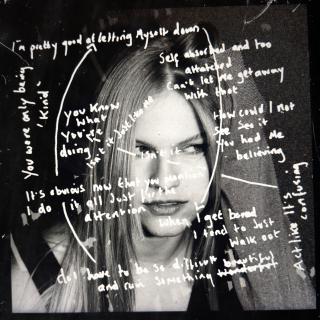 I'm pretty good at letting Myself down
Self absorbed and too
attached
Can't let Me get away
with that
You were only being
'Kind'
You Know
What
You're
doing
isn't it
How could I not
See it
You had Me
believing
It's obvious now that you mention
I do it all just for the
attention
When I get bored
I tend to Just
Walk out
Act like it's
confusing
do I have to be so difficult beautiful
and ruin something wonderful